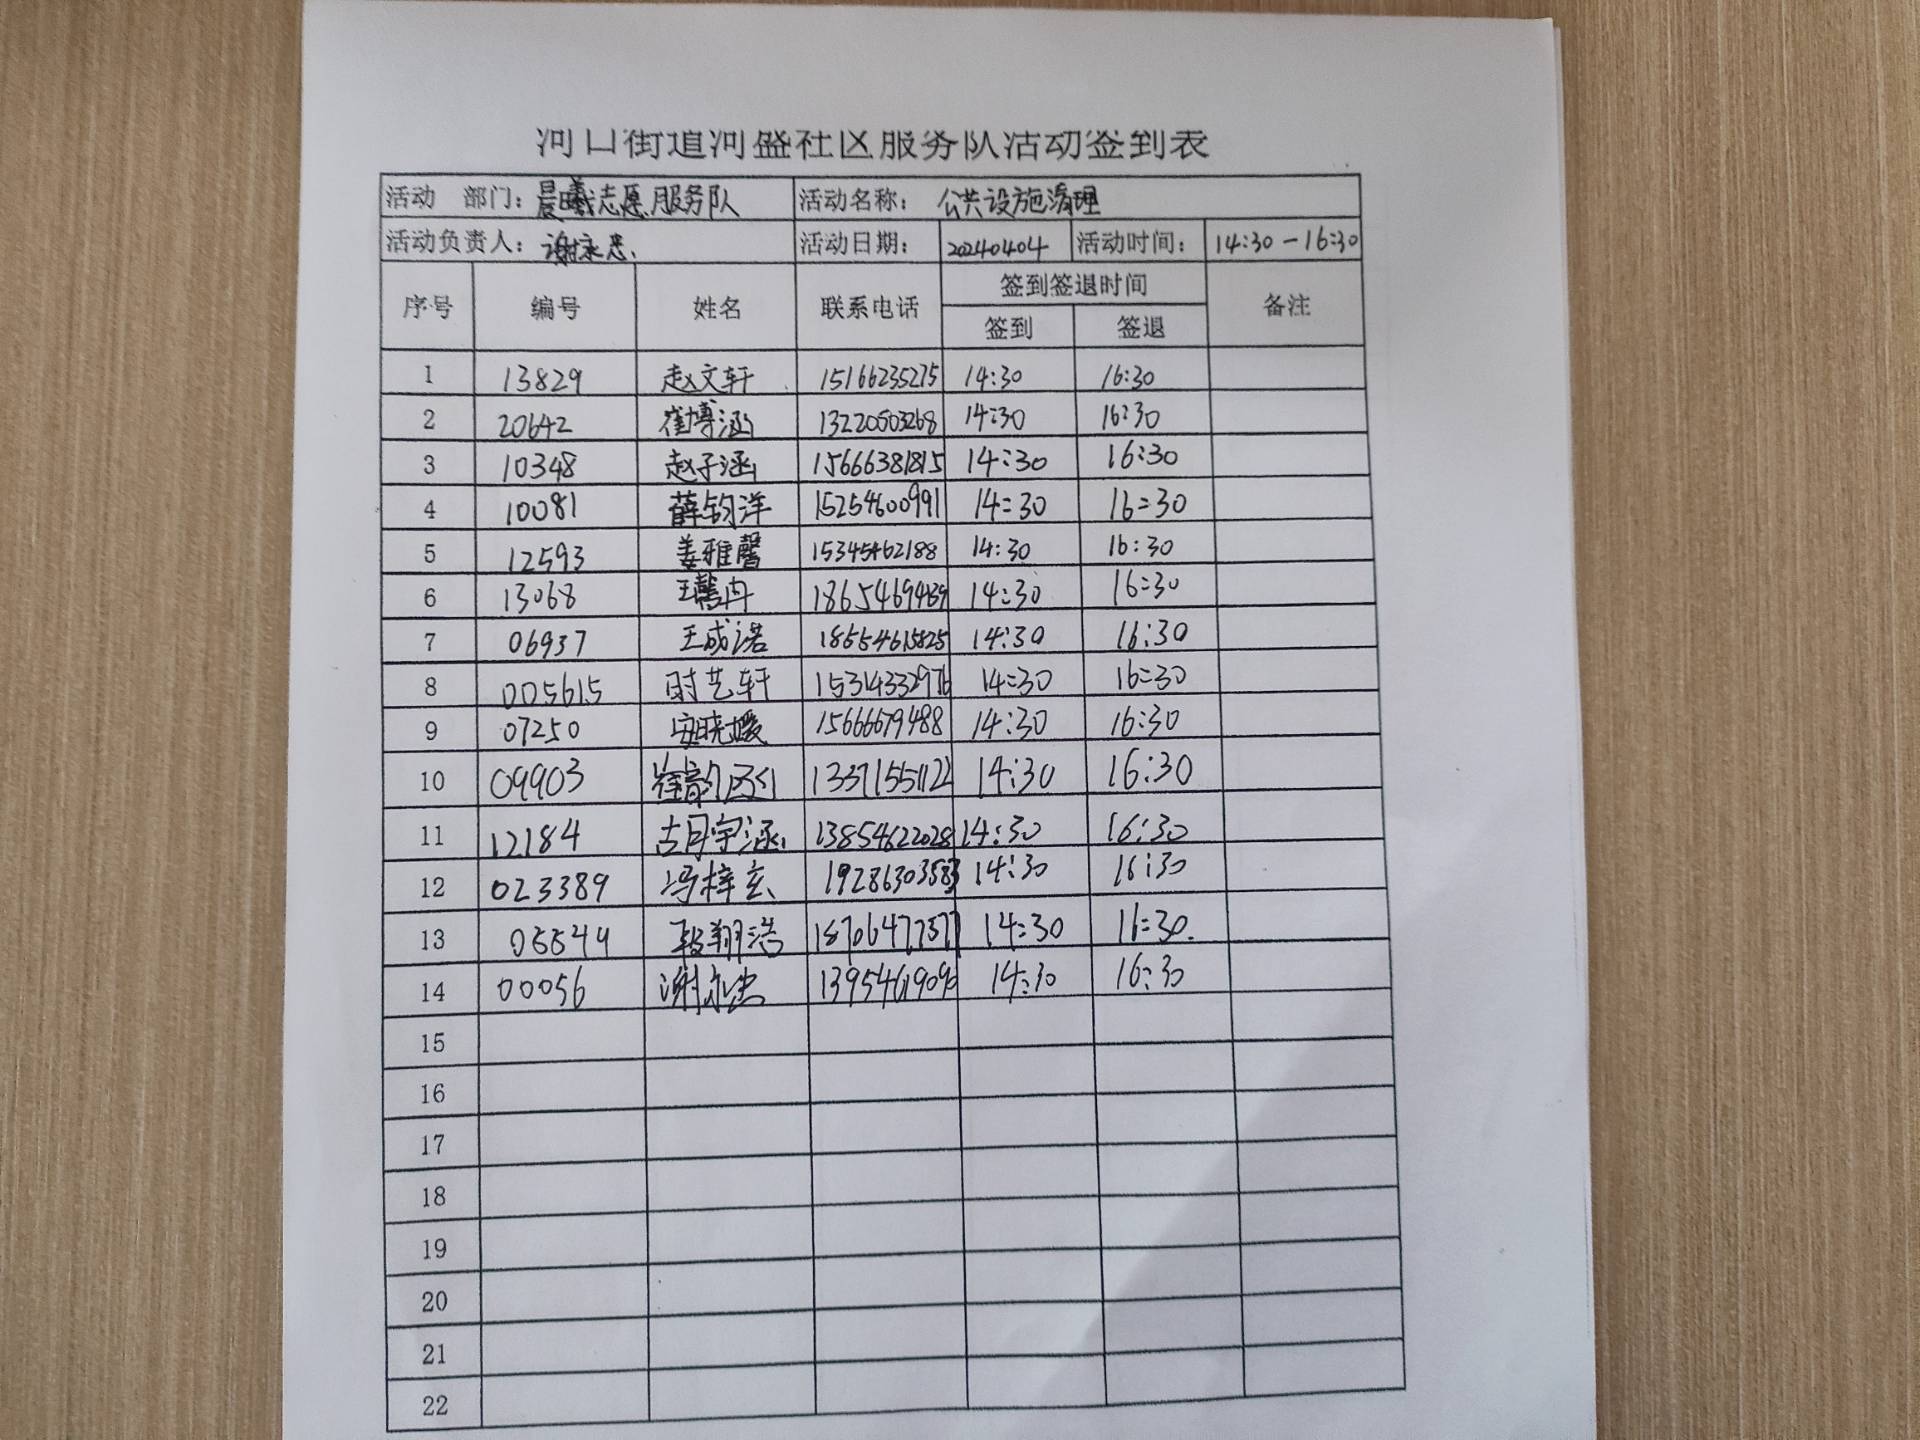 河口街道河盛社区服务队活动签到表
活动 部门: 晨曦志愿服务队 活动名称: 公共设施清理
活动负责人: 谢永忠 活动日期: 20240404 活动时间: 14:30-16:30
序号 编号 姓名 联系电话 签到签退时间 备注
签到 签退
1 13829 赵文轩 15166235275 14:30 16:30
2 20642 崔博涵 13220503268 14:30 16:30
3 10348 赵子涵 15666381815 14:30 16:30
4 10081 薛钧洋 15254600991 14:30 16:30
5 12593 姜雅馨 15345462188 14:30 16:30
6 13068 王馨冉 14:30 16:30
7 06937 王成诺 18554615825 14:30 16:30
8 005615 时艺轩 15314332976 14:30 16:30
9 07250 安晓媛 15666679488 14:30 16:30
10 09903 13371551122 14:30 16:30
11 12184 胡宇涵 13854622028 14:30 16:30
12 023389 冯梓玄 19286303583 14:30 16:30
13 05549 段翔浩 18706477577 14:30 16:30
14 00056 谢永忠 13954619090 14:30 16:30
15
16
17
18
19
20
21
22